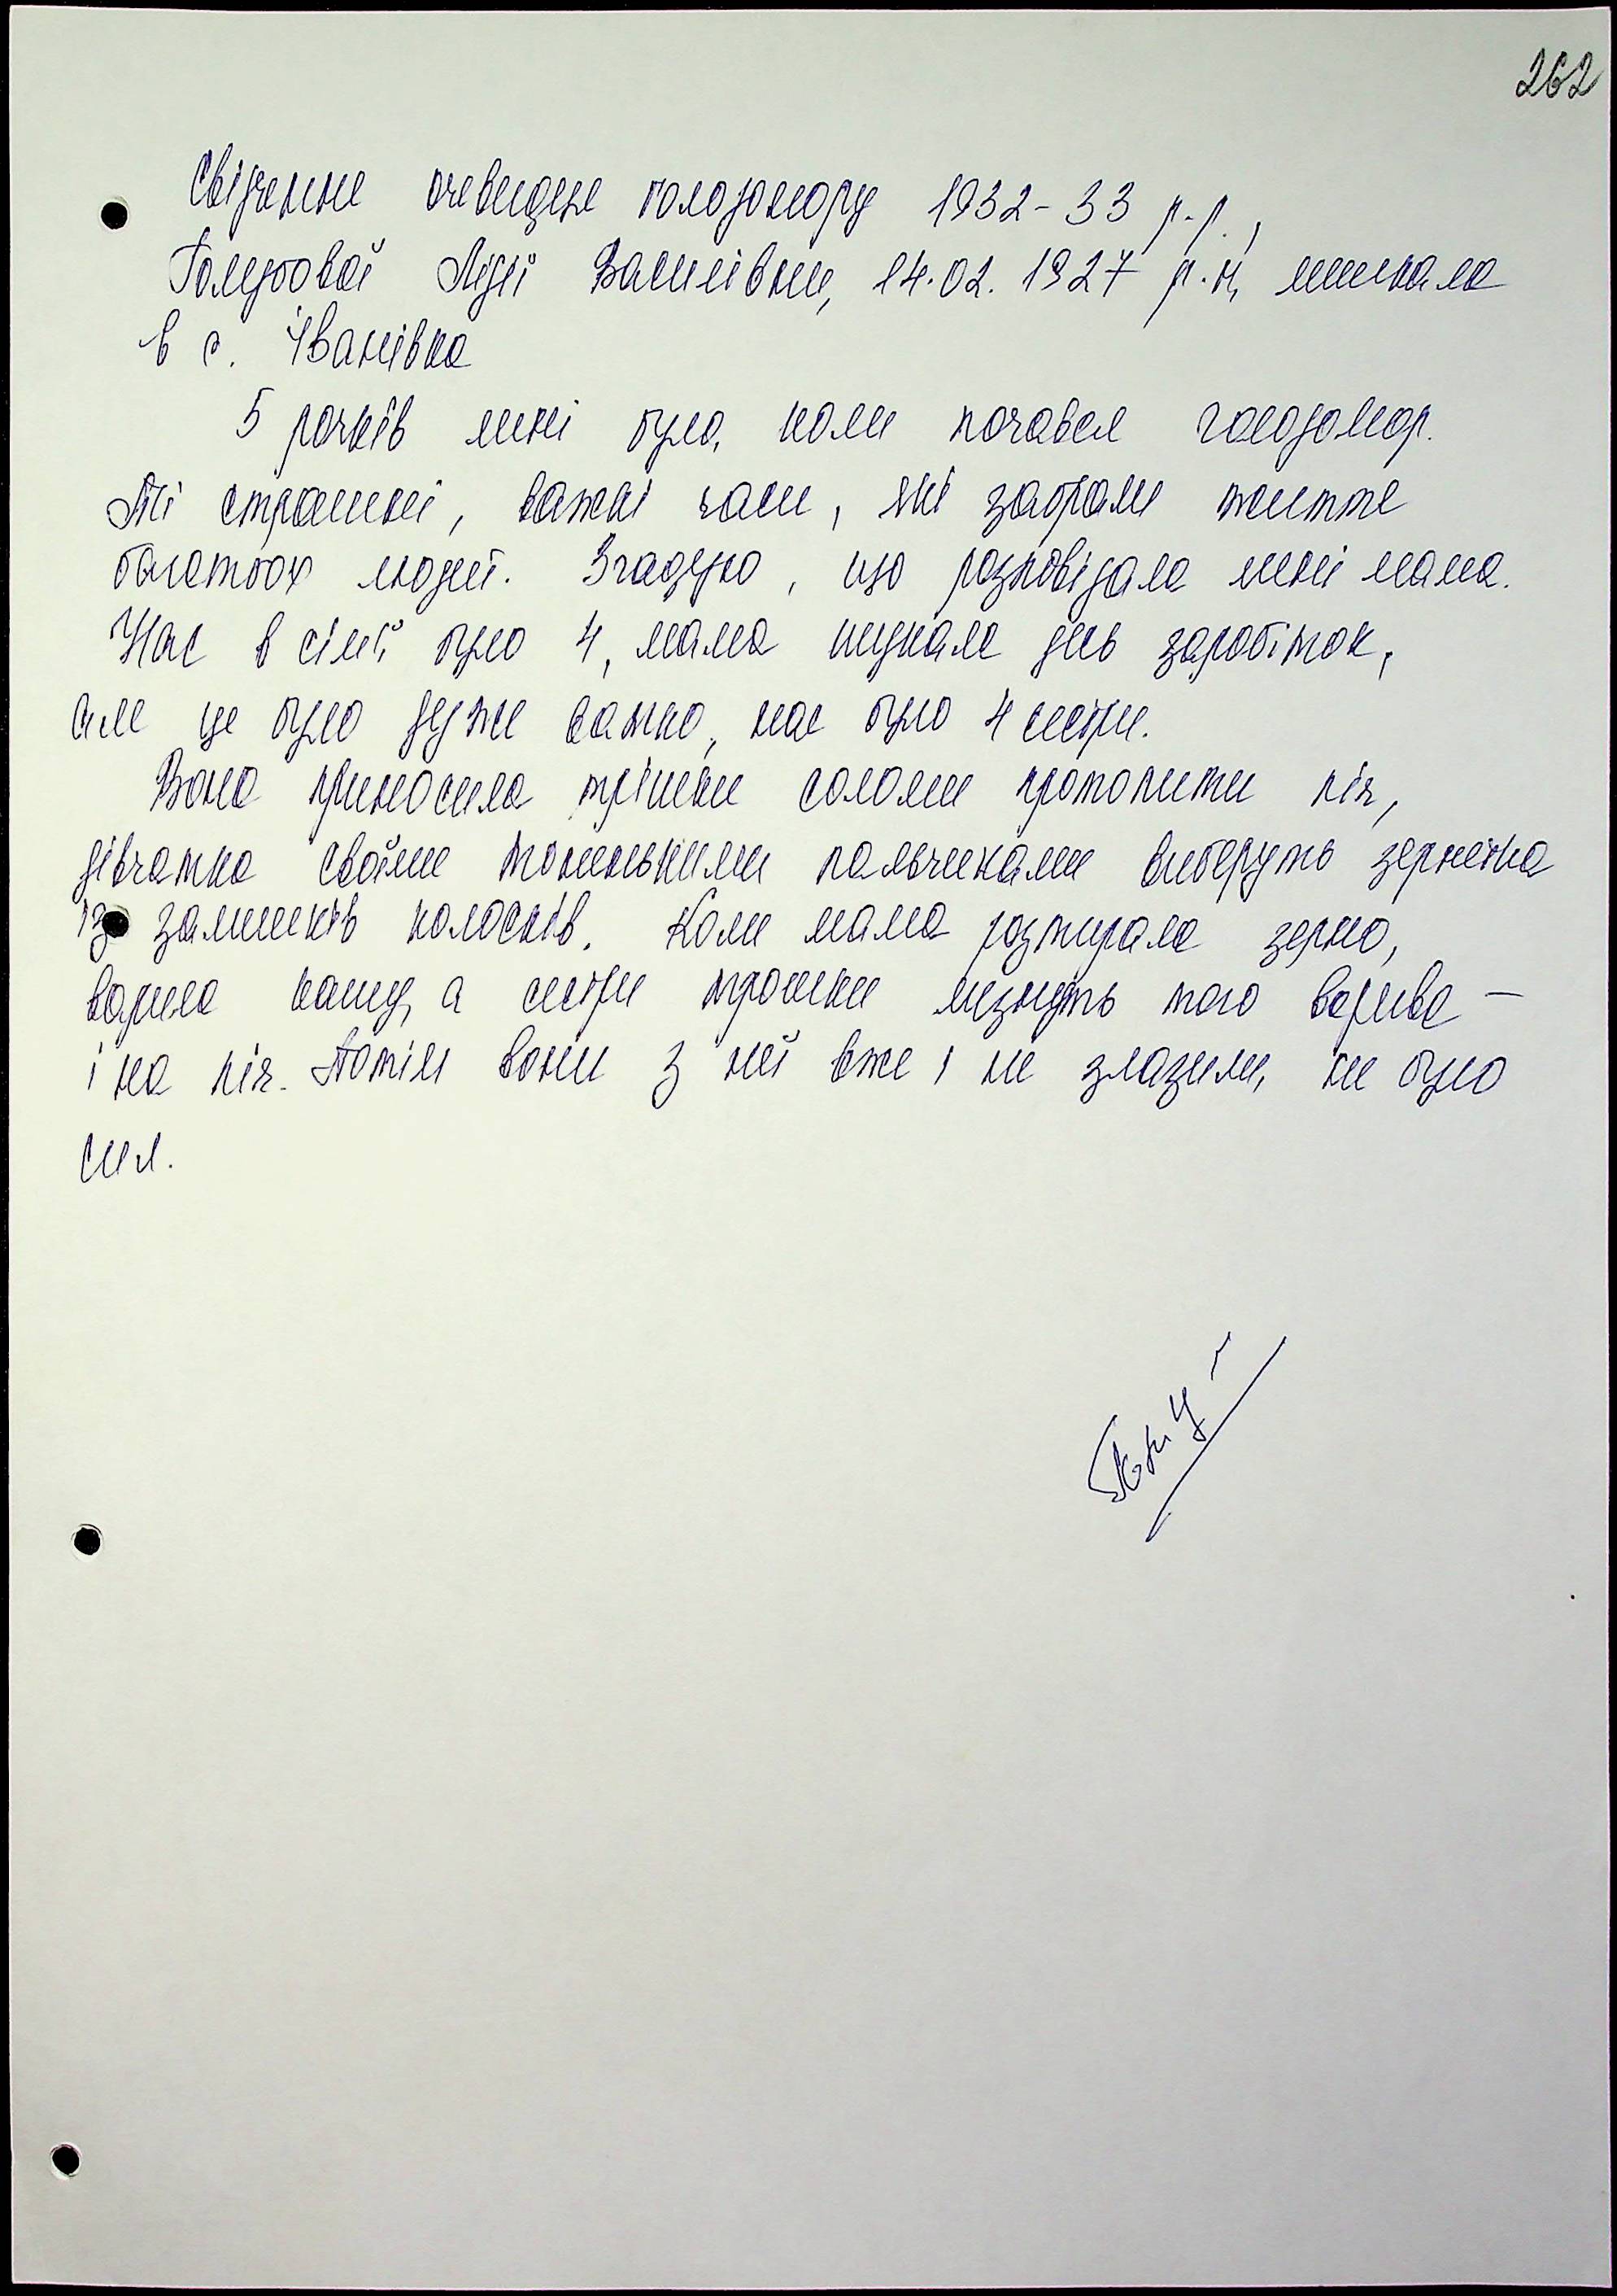 262
Свідчення очевидця голодомору 1932-33 р.р.,
Голубової Лідії Василівни, 14.02.1927 р.н, мешкала
в с. Іванівка
5 рочків мені було, коли почався голодомор.
Ті страшні, важкі часи, які забрали життя
багатьох людей. Згадую, що розповідала мені мама.
Нас в сім'ї було 4, мама шукала десь заробіток,
але це було дуже важко, нас було 4 сестри.
Вона приносила трішки соломи протопити піч,
дівчатка своїми тоненькими пальчиками виберуть зернятка
із залишків колосків. Коли мама розтирала зерно,
варила кашу, а сестри трошки лизнуть того варива –
і на піч. Потім вони з неї вже і не злазили, не було
сил.